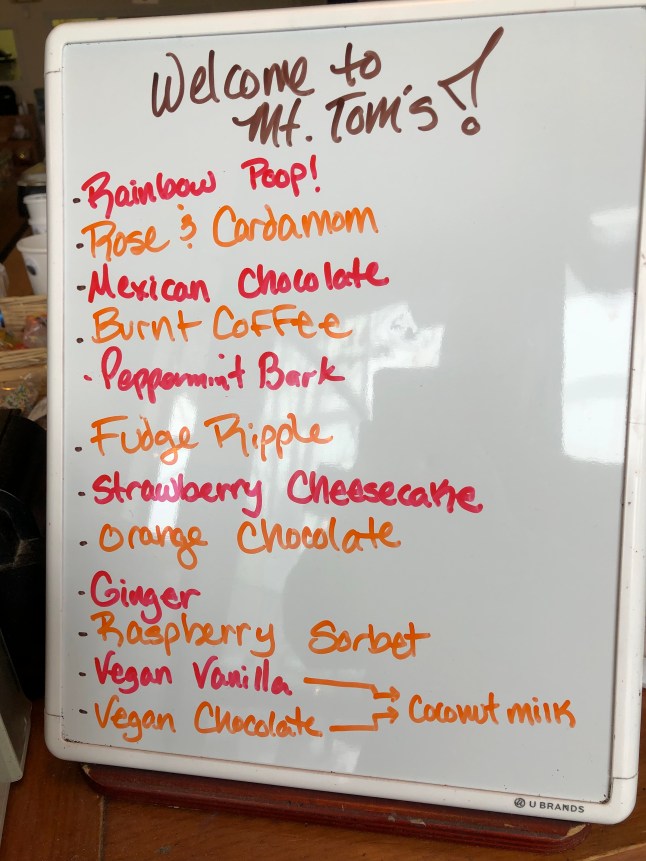 Welcome to
Mt. Tom's!
· Rainbow Poop!
· Rose & Cardamom
· Mexican Chocolate
· Burnt Coffee
· Peppermint Bark
· Fudge Ripple
· Strawberry Cheesecake
· Orange Chocolate
· Ginger
· Raspberry Sorbet
· Vegan Vanilla →
· Vegan Chocolate → Coconut milk
U BRANDS